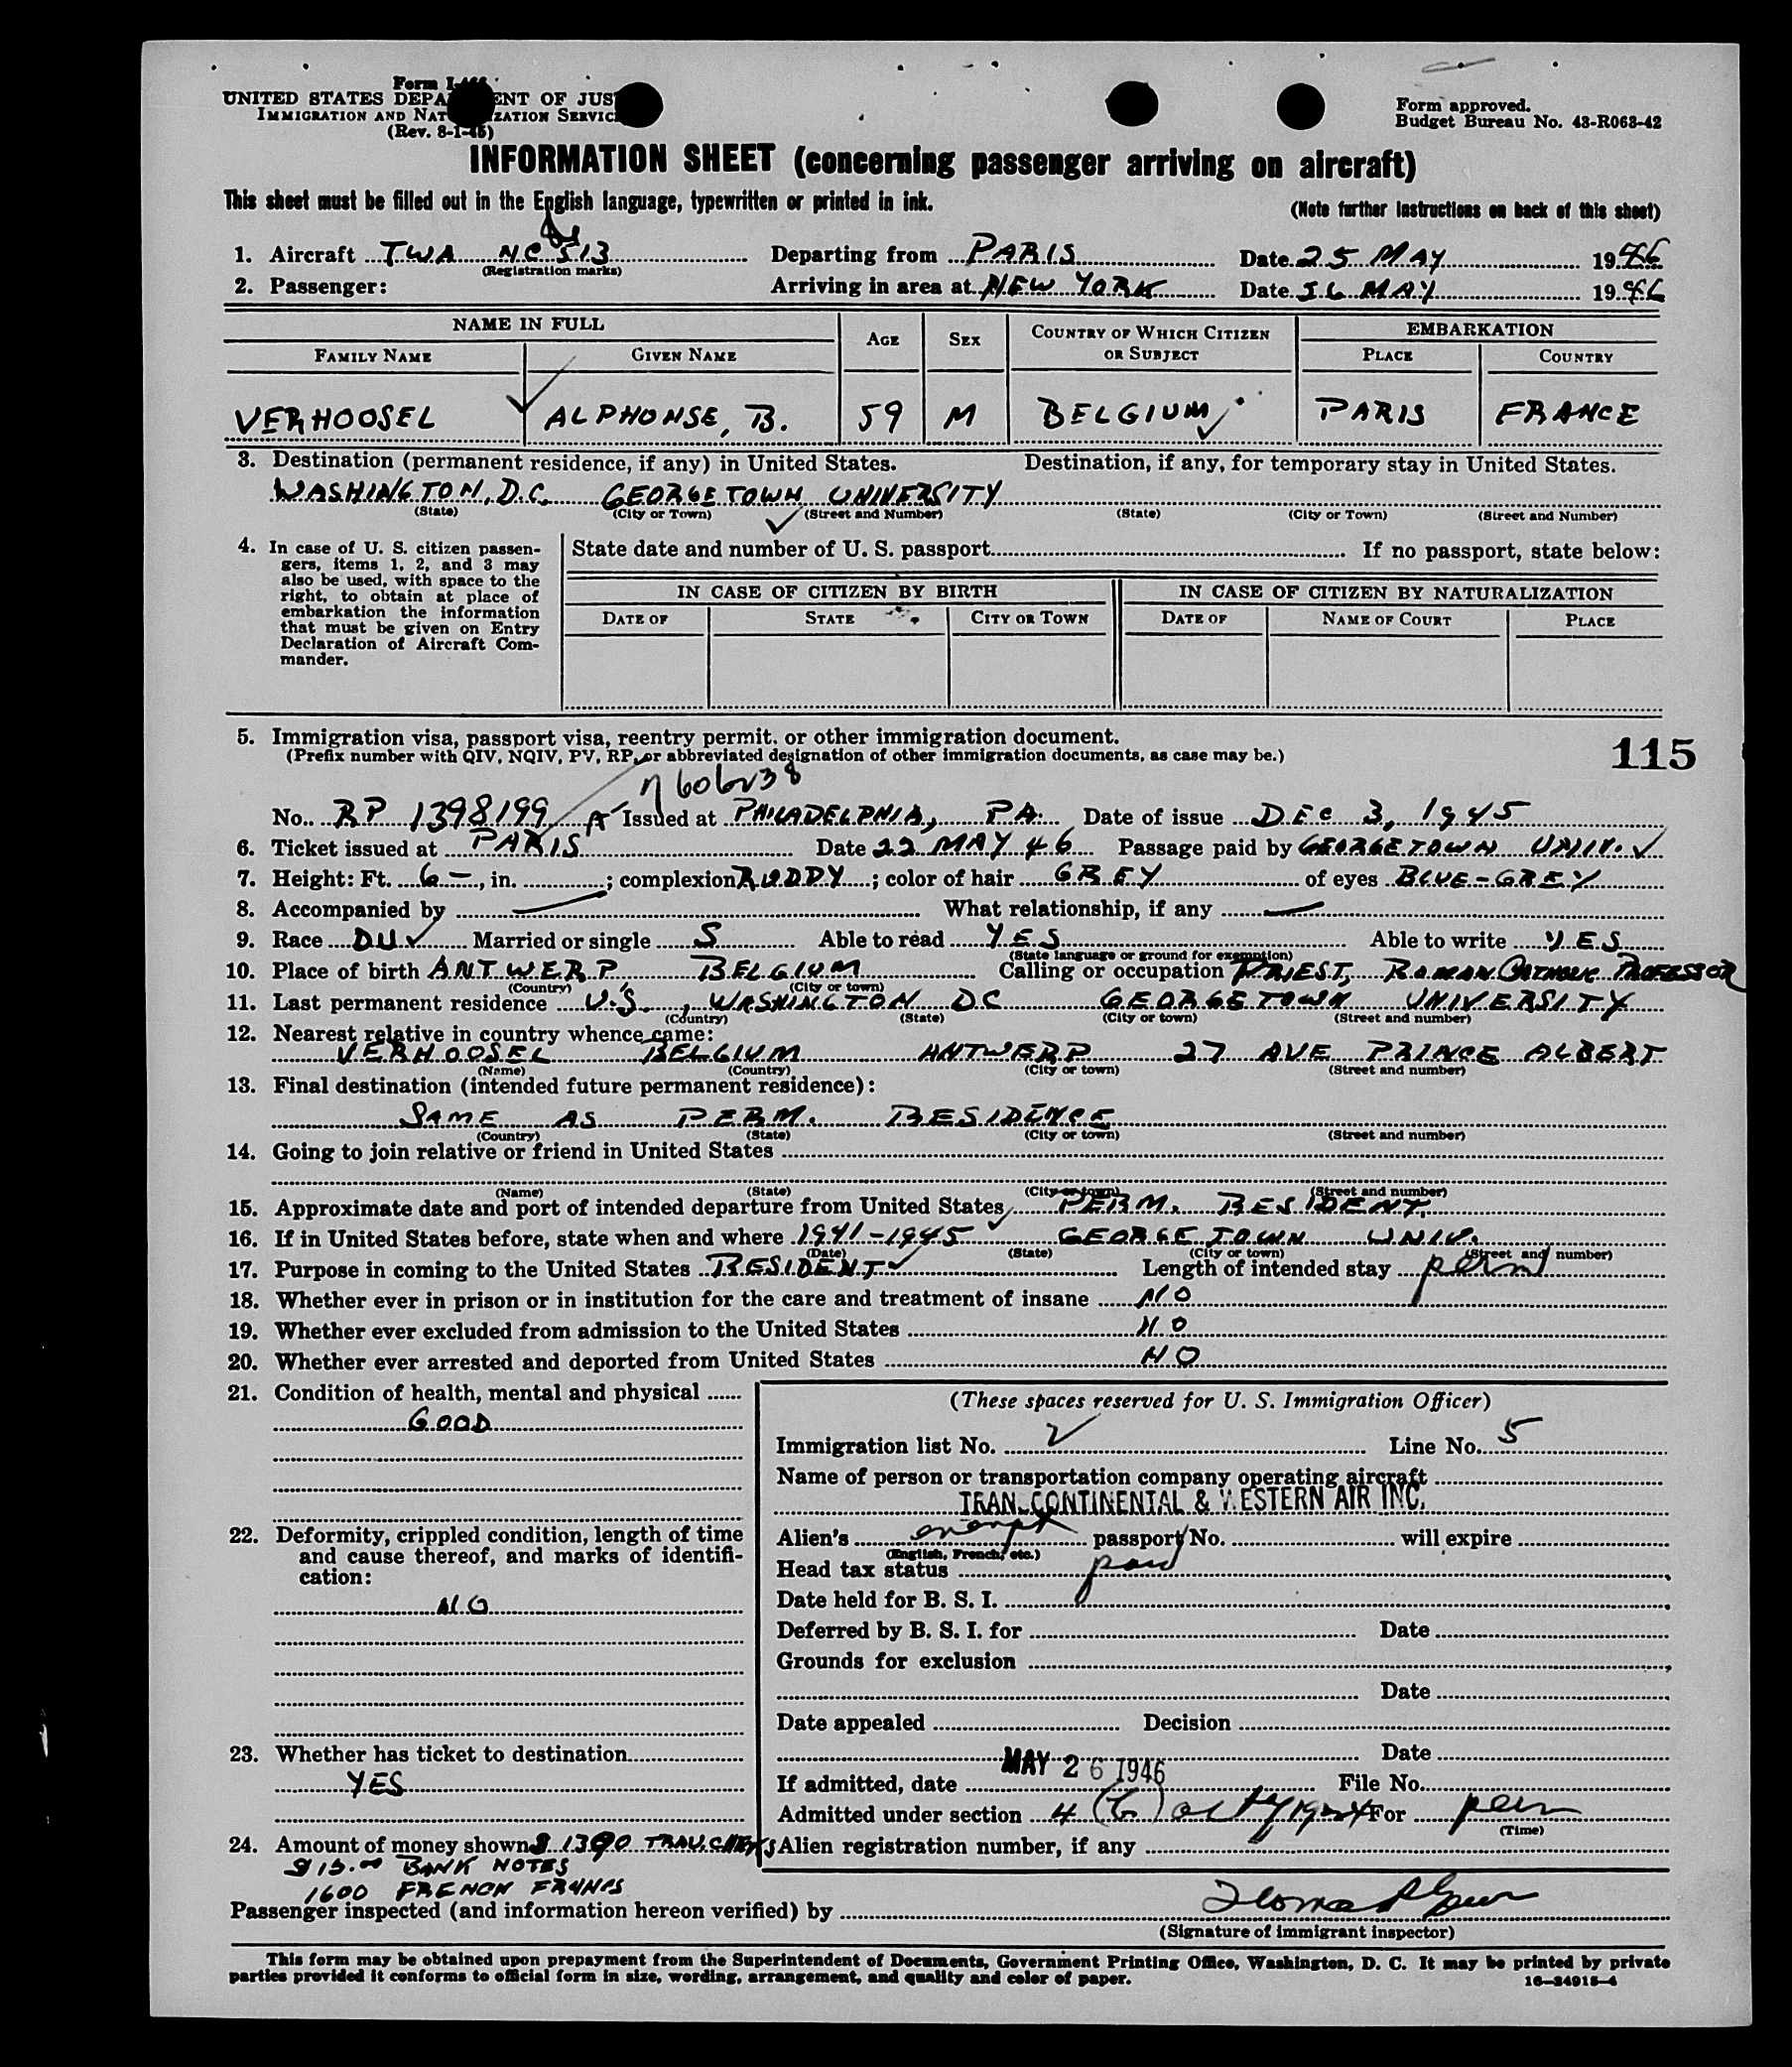 Form I-466
UNITED STATES DEPARTMENT OF JUSTICE
IMMIGRATION AND NATURALIZATION SERVICE
(Rev. 8-1-45)
Form approved.
Budget Bureau No. 43-R063-42
INFORMATION SHEET (concerning passenger arriving on aircraft)
This sheet must be filled out in the English language, typewritten or printed in ink.
(Note further instructions on back of this sheet)
1. Aircraft TWA NC 513 Departing from PARIS Date 25 MAY 1946
(Registration marks)
2. Passenger: Arriving in area at NEW YORK Date 26 MAY 1946
NAME IN FULL AGE SEX COUNTRY OF WHICH CITIZEN OR SUBJECT EMBARKATION
FAMILY NAME GIVEN NAME PLACE COUNTRY
VERHOOSEL ALPHONSE, B. 59 M BELGIUM PARIS FRANCE
3. Destination (permanent residence, if any) in United States. Destination, if any, for temporary stay in United States.
WASHINGTON, D.C. GEORGETOWN UNIVERSITY
(State) (City or Town) (Street and Number) (State) (City or Town) (Street and Number)
4. In case of U. S. citizen passen-
gers, items 1, 2, and 3 may
also be used, with space to the
right, to obtain at place of
embarkation the information
that must be given on Entry
Declaration of Aircraft Com-
mander.
State date and number of U. S. passport If no passport, state below:
IN CASE OF CITIZEN BY BIRTH IN CASE OF CITIZEN BY NATURALIZATION
DATE OF STATE CITY OR TOWN DATE OF NAME OF COURT PLACE
5. Immigration visa, passport visa, reentry permit, or other immigration document.
(Prefix number with QIV, NQIV, PV, RP, or abbreviated designation of other immigration documents, as case may be.)
115
No. RP 1398199 Issued at PHILADELPHIA, PA. Date of issue DEC 3, 1945
6. Ticket issued at PARIS Date 22 MAY 46 Passage paid by GEORGETOWN UNIV.
7. Height: Ft. 6 –, in. ; complexion RUDDY ; color of hair GREY of eyes BLUE-GREY
8. Accompanied by — What relationship, if any —
9. Race DU Married or single S Able to read YES Able to write YES
(State language or ground for exemption)
10. Place of birth ANTWERP, BELGIUM Calling or occupation PRIEST, ROMAN CATHOLIC PROFESSOR
(Country) (City or town)
11. Last permanent residence U.S., WASHINGTON DC GEORGETOWN UNIVERSITY
(Country) (State) (City or town) (Street and number)
12. Nearest relative in country whence came:
VERHOOSEL BELGIUM ANTWERP 27 AVE PRINCE ALBERT
(Name) (Country) (City or town) (Street and number)
13. Final destination (intended future permanent residence):
SAME AS PERM. RESIDENCE
(Country) (State) (City or town) (Street and number)
14. Going to join relative or friend in United States
(Name) (State) (City or town) (Street and number)
15. Approximate date and port of intended departure from United States PERM. RESIDENT.
16. If in United States before, state when and where 1941-1945 GEORGETOWN UNIV.
(Date) (State) (City or town) (Street and number)
17. Purpose in coming to the United States RESIDENT Length of intended stay perm
18. Whether ever in prison or in institution for the care and treatment of insane NO
19. Whether ever excluded from admission to the United States NO
20. Whether ever arrested and deported from United States NO
21. Condition of health, mental and physical
GOOD
22. Deformity, crippled condition, length of time
and cause thereof, and marks of identifi-
cation:
NO
23. Whether has ticket to destination
YES
24. Amount of money shown $ 1390 TRAV. CHEKS
$ 15.00 BANK NOTES
1600 FRENCH FRANCS
(These spaces reserved for U. S. Immigration Officer)
Immigration list No. 2 Line No. 5
Name of person or transportation company operating aircraft
TRANSCONTINENTAL & WESTERN AIR INC.
Alien's exempt passport No. will expire
(English, French, etc.)
Head tax status paid
Date held for B. S. I.
Deferred by B. S. I. for Date
Grounds for exclusion
Date
Date appealed Decision
Date
MAY 26 1946
If admitted, date File No.
Admitted under section 4 (b) act of 1924 For perm
(Time)
Alien registration number, if any
Passenger inspected (and information hereon verified) by
(Signature of immigrant inspector)
This form may be obtained upon prepayment from the Superintendent of Documents, Government Printing Office, Washington, D. C. It may be printed by private
parties provided it conforms to official form in size, wording, arrangement, and quality and color of paper.
16—24915-4